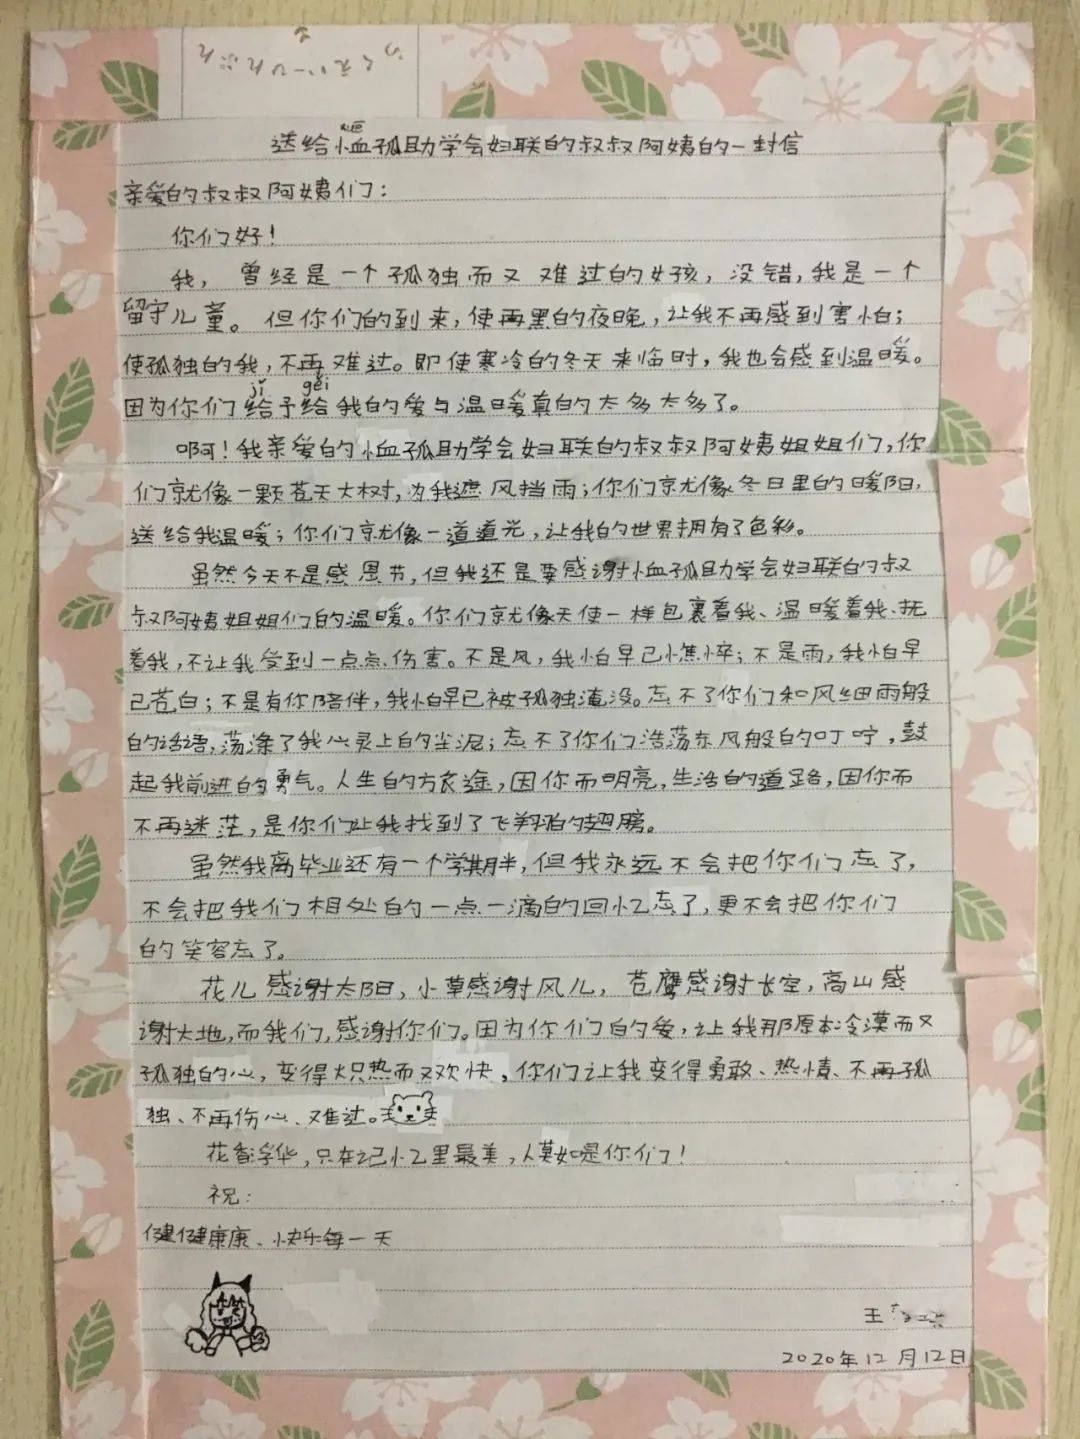 送给恤孤助学会妇联的叔叔阿姨的一封信
亲爱的叔叔阿姨们：
你们好！
我，曾经是一个孤独而又难过的女孩，没错，我是一个
留守儿童。但你们的到来，使再黑的夜晚，让我不再感到害怕；
使孤独的我，不再难过。即使寒冷的冬天来临时，我也会感到温暖。
jǐ gěi
因为你们给予给我的爱与温暖真的太多太多了。
啊！我亲爱的恤孤助学会妇联的叔叔阿姨姐姐们，你
们就像一颗苍天大树，为我遮风挡雨；你们就像冬日里的暖阳，
送给我温暖；你们就像一道道光，让我的世界拥有了色彩。
虽然今天不是感恩节，但我还是要感谢恤孤助学会妇联的叔
叔阿姨姐姐们的温暖。你们就像天使一样包裹着我、温暖着我、抚
着我，不让我受到一点点伤害。不是风，我怕早已憔悴；不是雨，我怕早
已苍白；不是有你陪伴，我怕早已被孤独淹没。忘不了你们和风细雨般
的话语，荡涤了我心灵上的尘泥；忘不了你们浩荡东风般的叮咛，鼓
起我前进的勇气。人生的旅途，因你而明亮，生活的道路，因你而
不再迷茫，是你们让我找到了飞翔的翅膀。
虽然我离毕业还有一个学期半，但我永远不会把你们忘了，
不会把我们相处的一点一滴的回忆忘了，更不会把你们
的笑容忘了。
花儿感谢太阳，小草感谢风儿，苍鹰感谢长空，高山感
谢大地，而我们，感谢你们。因为你们的爱，让我那原本冷漠而又
孤独的心，变得炽热而又欢快，你们让我变得勇敢、热情、不再孤
独、不再伤心、难过。
花香浮华，只在记忆里最美，莫如是你们！
祝：
健健康康、快乐每一天
王
2020年12月12日